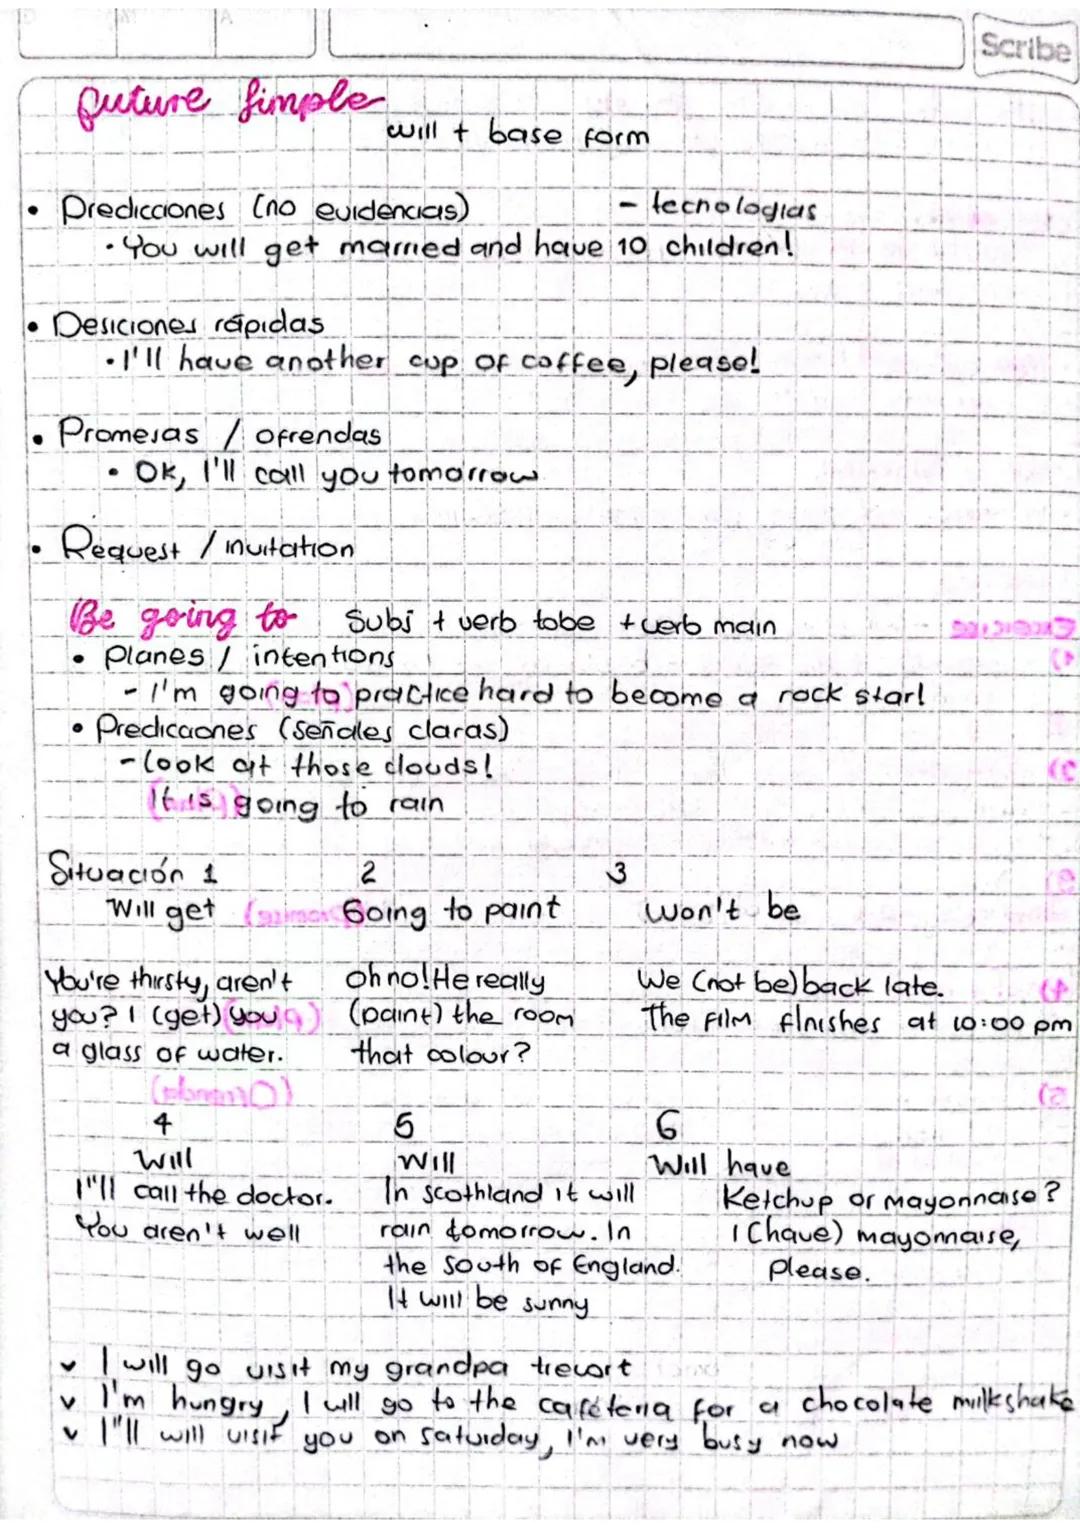 Scribe
future Simple
will + base form
• Predicciones (no evidencias) - tecnologias
• You will get married and have 10 children!
• Desiciones rápidas
• I'll have another cup of coffee, please!
• Promesas / ofrendas
• OK, I'll call you tomorrow
• Request / invitation
Be going to Subj + verb tobe + verb main
• Planes / intentions
- I'm going to practice hard to become a rock star!
• Predicciones (señales claras)
- Look at those clouds!
It is going to rain
Situación 1 2 3
Will get Going to paint Won't be
You're thirsty, aren't oh no! He really We (not be) back late.
you? I (get) you (paint) the room The film finishes at 10:00 pm
a glass of water. that colour?
4 5 6
Will Will Will have
I''ll call the doctor. In scothland it will Ketchup or mayonnaise?
You aren't well rain tomorrow. In I (have) mayonnaise,
the south of England. Please.
It will be sunny
✓ I will go visit my grandpa trevort
✓ I'm hungry, I will go to the cafeteria for a chocolate milkshake
✓ I''ll will visit you on saturday, I'm very busy now